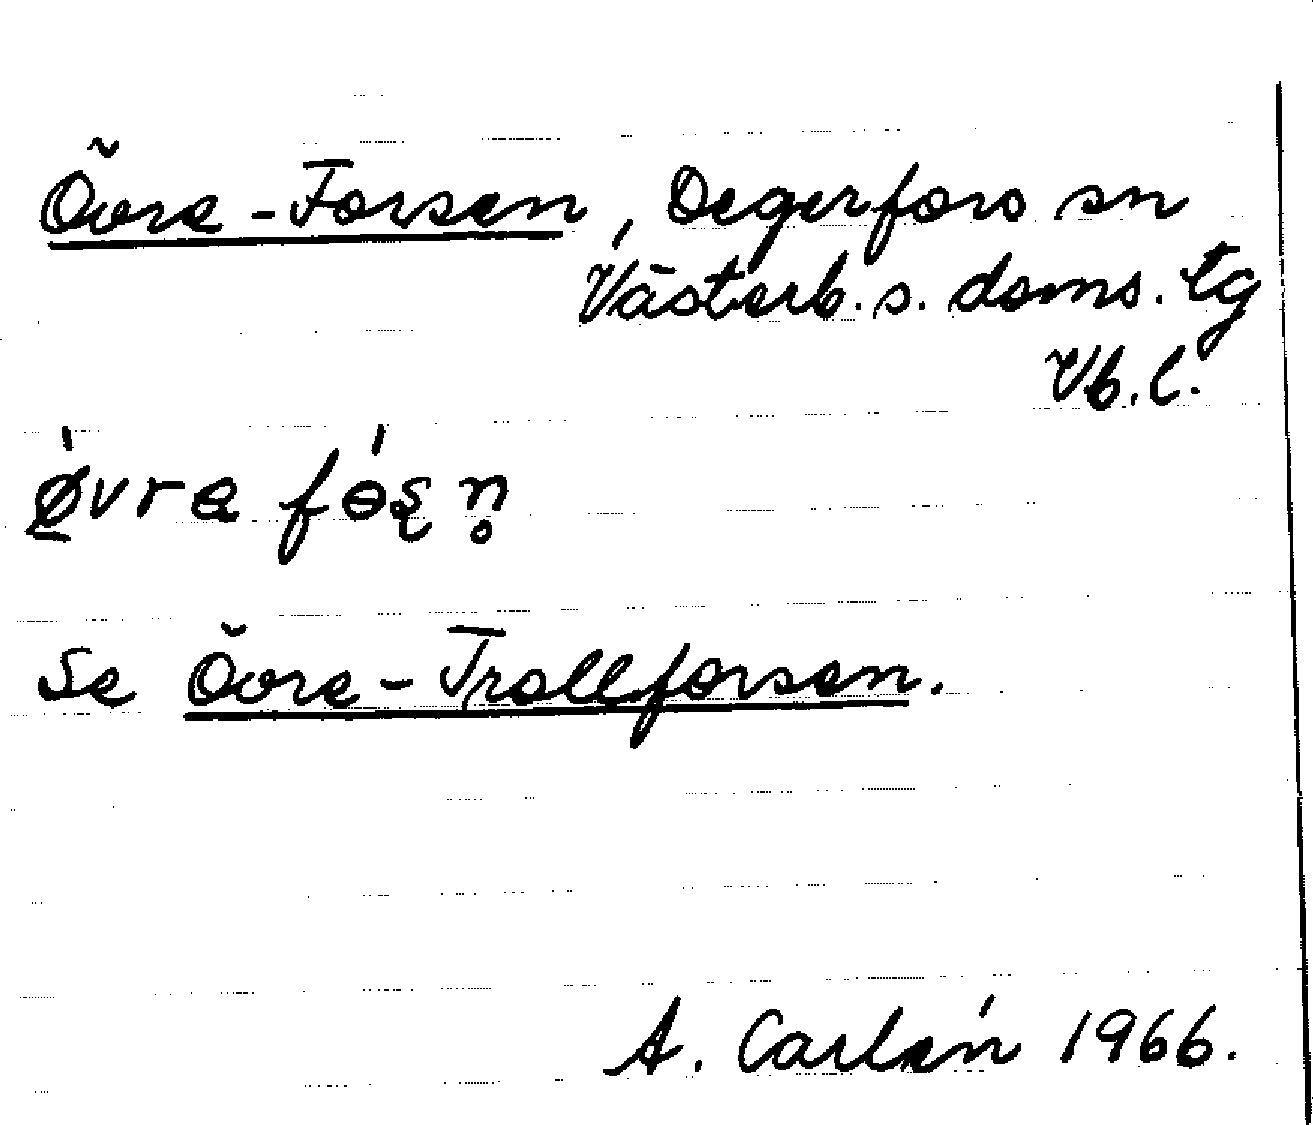 Övre-Forsen, Degerfors sn
Västerb. s. doms. tg
Vb. l.
ǿvrə fɵ́ʂn̥
Se Övre-Trollforsen.
A. Carlén 1966.